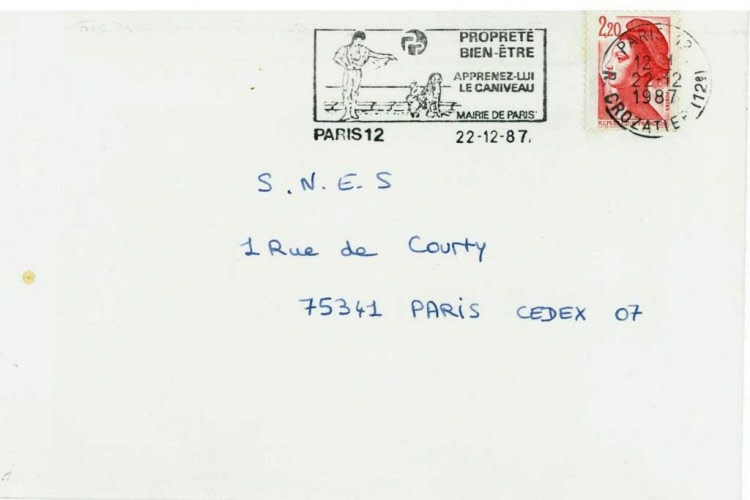 PROPRETÉ
BIEN-ÊTRE
APPRENEZ-LUI
LE CANIVEAU
MAIRIE DE PARIS
PARIS 12
22-12-87
2,20
PARIS 12
12
22-12
1987
R. CROZATIER (12e)
S.N.E.S
1 Rue de Courty
75341 PARIS CEDEX 07